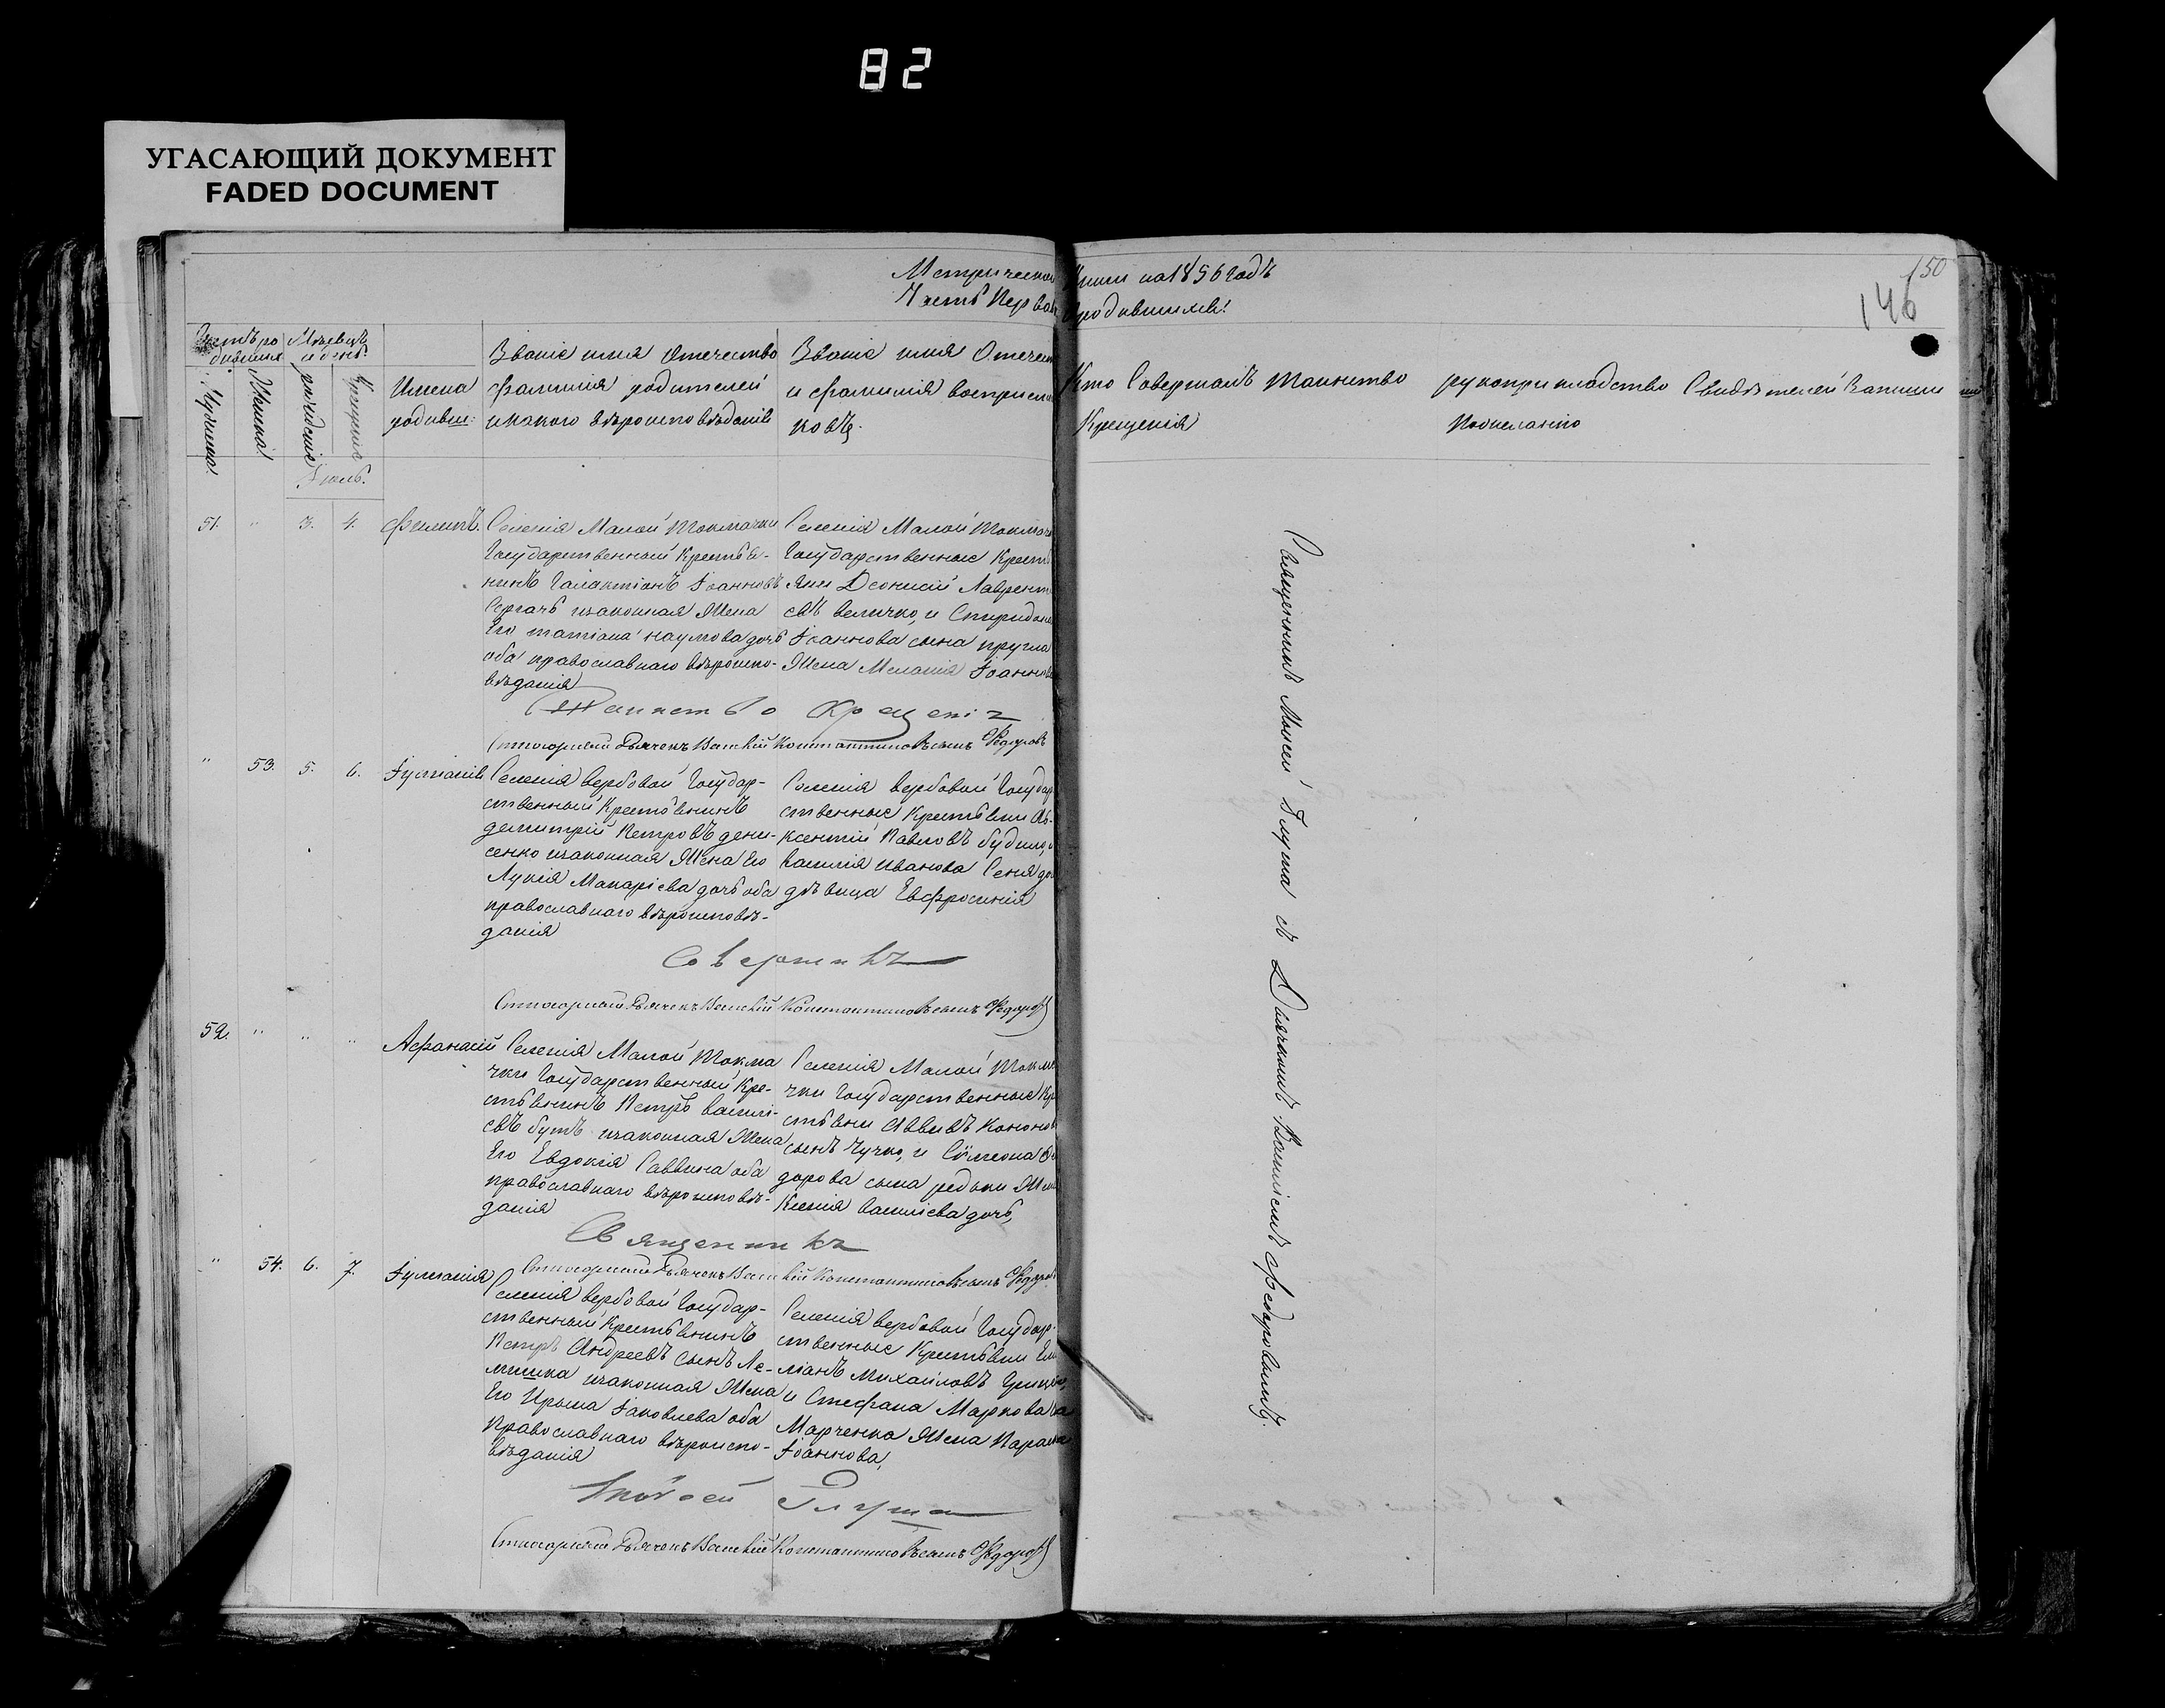 82
УГАСАЮЩИЙ ДОКУМЕНТ
FADED DOCUMENT
Метрической Книги на 1856 годъ
Часть Первая О родившихся!
150
146
Счетъ ро
дившихся
Мѣсяцъ
и день
Мужеска.
Женска.
рождения
Крещения
Имена
родивш:
Званіе имя Отечество
фамилія родителей
и какого вѣроисповѣданія
Званіе имя Отечест
и фамилія воспріем
ковъ.
Кто Совершалъ таинство
Крещенія
рукоприкладство Свидѣтелей Записи
по желанію
Іюль.
51. " 3. 4. Филипъ.
Селенія Малой Токмачки
Государственный Крестья-
нинъ Галактіонъ Іоанновъ
Сергачъ и законная Жена
Его татіана наумова дочь
оба православнаго вѣроиспо-
вѣданія
Селенія Малой Токмач
Государственные Кресть
яни Деонисій Лаврент
евъ величко, и Спиридона
Іоаннова сына кругла
Жена Меланія Іоаннов
Таинство Крещенія
Стихарный Дьячекъ Василій Константиновъ сынъ Федоровъ
" 53. 5. 6. Іуліанія
Селенія вербовой Государ-
ственный Крестьянинъ
демитрій Петровъ дени-
сенко и законная Жена Его
Лукія Макаріева дочь оба
православнаго вѣроисповѣ-
данія
Селенія вербовой Государ
ственные Крестьяни Ав-
ксентій Павловъ будило, и
василія иванова Сеня до
дѣвица Евфросинія
Совершилъ
Стихарный Дьячекъ Василій Константиновъ сынъ Федоровъ
52. " " " Афанасій
Селенія Малой Токма
чки Государственный Кре-
стьянинъ Петръ василі-
евъ бутъ и законная Жена
Его Евдокія Саввина оба
православнаго вѣроисповѣ-
данія
Селенія Малой Токма
чки Государственные Кр
стьяни Аввивъ Кононов
сынъ Чучко, и Сѵмеона Фе
дорова сына редьки Жена
Ксенія василіева дочь,
Священникъ
Стихарный Дьячекъ Василій Константиновъ сынъ Федоровъ
" 54. 6. 7. Іуліанія
Селенія вербовой Государ-
ственный Крестьянинъ
Петръ Андреевъ сынъ Ле-
мишка и законная Жена
Его Ирына Іаковлева оба
Православнаго вѣроиспо-
вѣданія
Селенія вербовой Государ-
ственные Крестьяни Ем
ліанъ михаиловъ
и Стефана Маркова
Марченка Жена Параск
Іоаннова,
Моѵсей Глуша
Стихарный Дьячекъ Василій Константиновъ сынъ Федоровъ
Священникъ Моисей Глуша съ Дьячкомъ Василіемъ Федоровымъ.